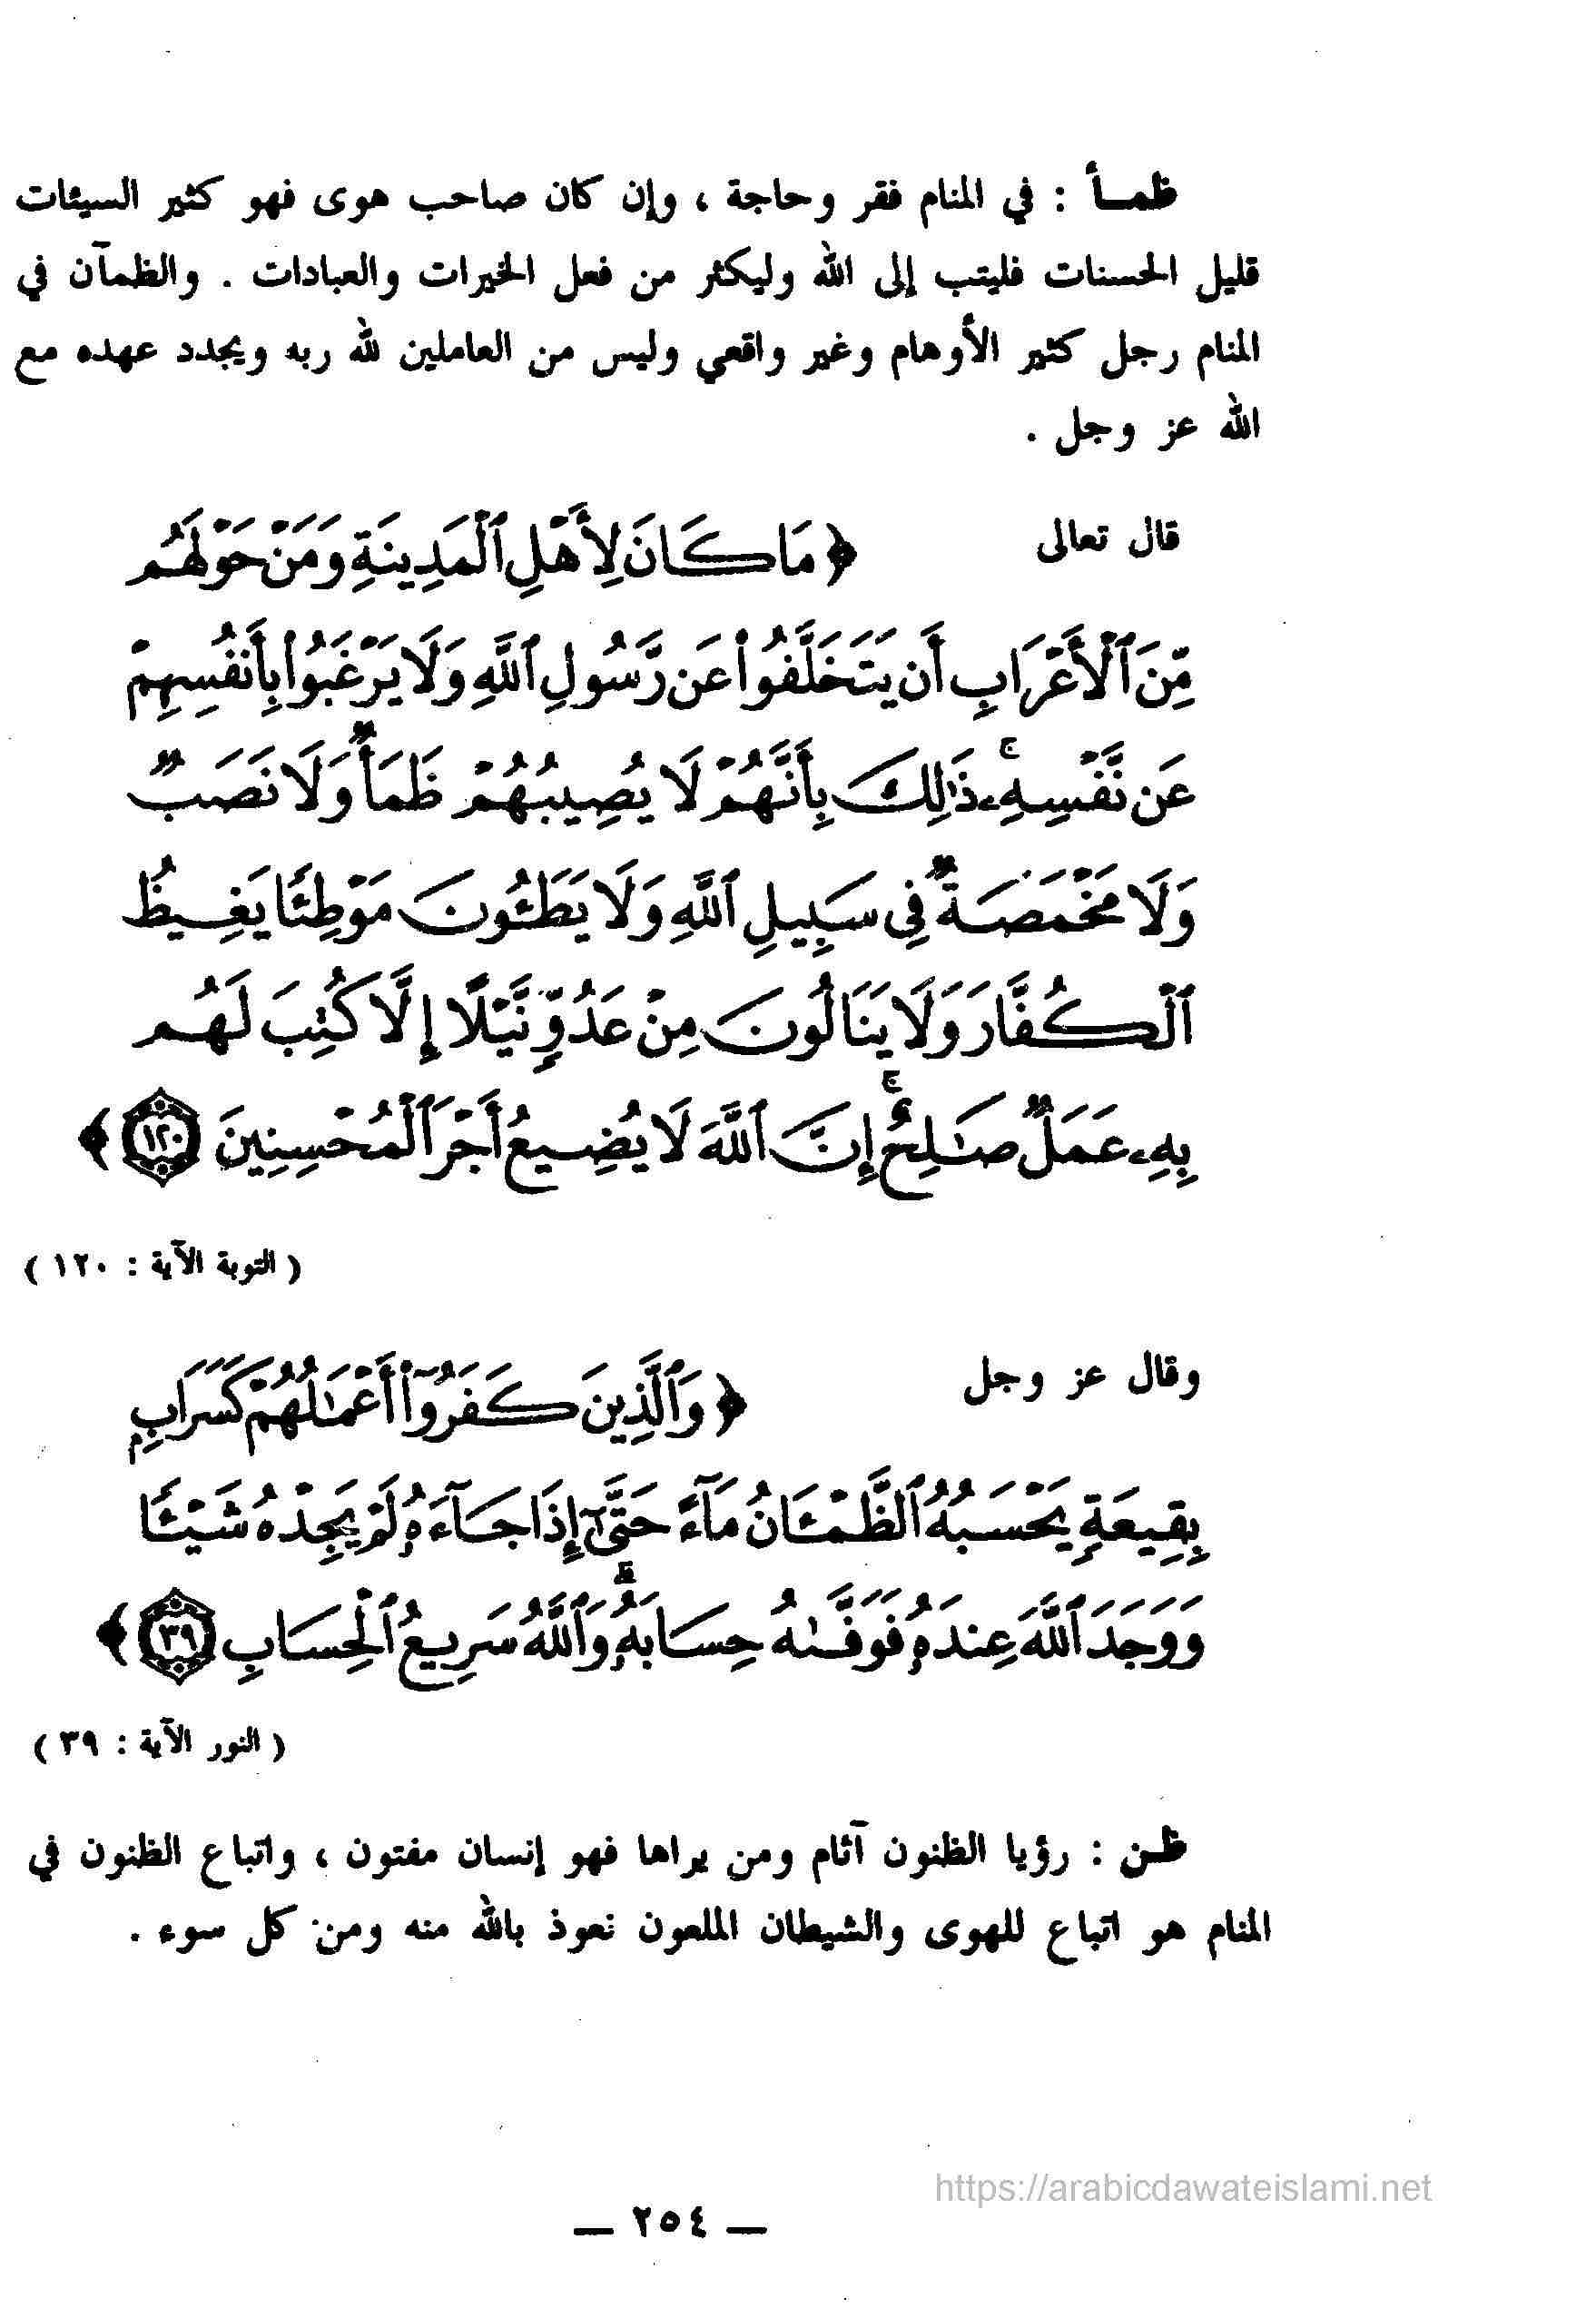 ظمـأ : في المنام فقر وحاجة ، وإن كان صاحب هوى فهو كثير السيئات
قليل الحسنات فليتب إلى الله وليكثر من فعل الخيرات والعبادات . والظمآن في
المنام رجل كثير الأوهام وغير واقعي وليس من العاملين لله ربه ويجدد عهده مع
الله عز وجل .
قال تعالى ﴿ مَا كَانَ لِأَهْلِ ٱلْمَدِينَةِ وَمَنْ حَوْلَهُم
مِّنَ ٱلْأَعْرَابِ أَن يَتَخَلَّفُوا۟ عَن رَّسُولِ ٱللَّهِ وَلَا يَرْغَبُوا۟ بِأَنفُسِهِمْ
عَن نَّفْسِهِۦ ۚ ذَٰلِكَ بِأَنَّهُمْ لَا يُصِيبُهُمْ ظَمَأٌ وَلَا نَصَبٌ
وَلَا مَخْمَصَةٌ فِى سَبِيلِ ٱللَّهِ وَلَا يَطَـُٔونَ مَوْطِئًا يَغِيظُ
ٱلْكُفَّارَ وَلَا يَنَالُونَ مِنْ عَدُوٍّ نَّيْلًا إِلَّا كُتِبَ لَهُم
بِهِۦ عَمَلٌ صَـٰلِحٌ ۚ إِنَّ ٱللَّهَ لَا يُضِيعُ أَجْرَ ٱلْمُحْسِنِينَ ١٢٠ ﴾
( التوبة الآية : ١٢٠ )
وقال عز وجل ﴿ وَٱلَّذِينَ كَفَرُوٓا۟ أَعْمَـٰلُهُمْ كَسَرَابٍۭ
بِقِيعَةٍ يَحْسَبُهُ ٱلظَّمْـَٔانُ مَآءً حَتَّىٰٓ إِذَا جَآءَهُۥ لَمْ يَجِدْهُ شَيْـًٔا
وَوَجَدَ ٱللَّهَ عِندَهُۥ فَوَفَّىٰهُ حِسَابَهُۥ ۗ وَٱللَّهُ سَرِيعُ ٱلْحِسَابِ ٣٩ ﴾
( النور الآية : ٣٩ )
ظـن : رؤيا الظنون آثام ومن يراها فهو إنسان مفتون ، واتباع الظنون في
المنام هو اتباع للهوى والشيطان الملعون نعوذ بالله منه ومن كل سوء .
https://arabicdawateislami.net
— ٢٥٤ —